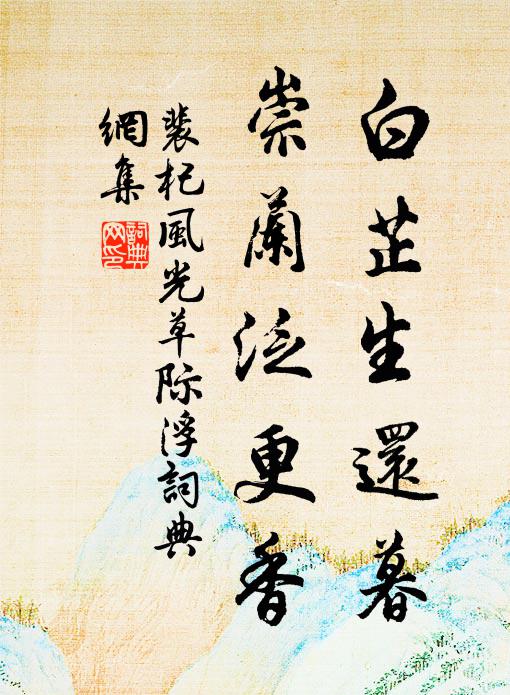 白芷生還暮
崇蘭泛更香
裴杞風光草際浮詞典
網集
詞典
网印